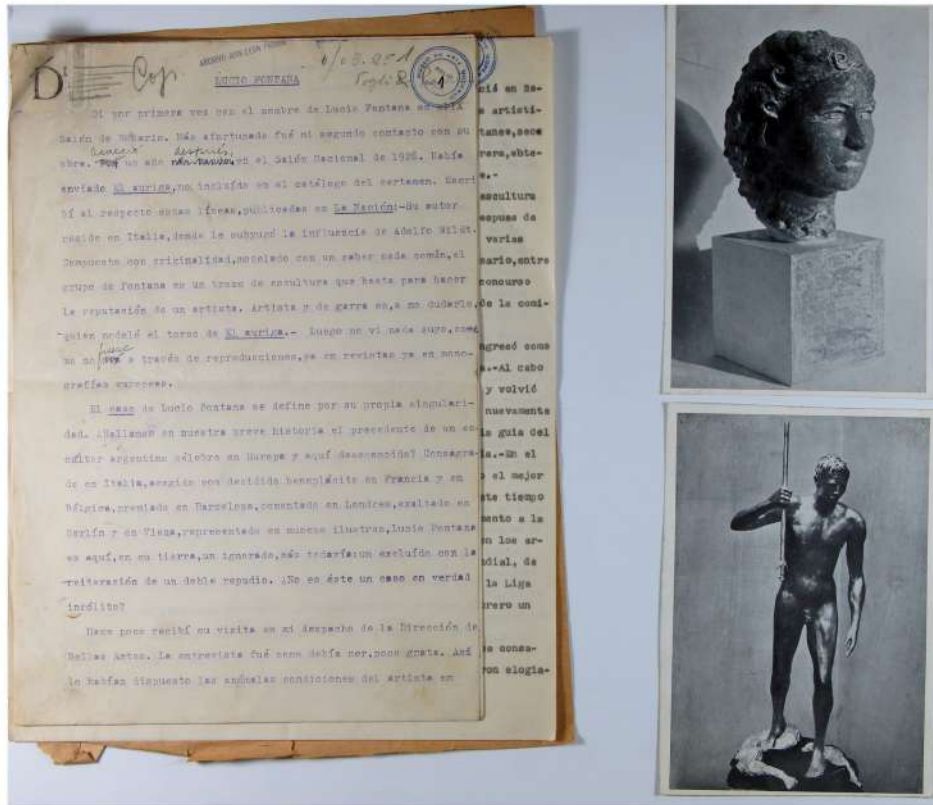 D
Cop.
ARCHIVO
LUCIO FONTANA
Di por primera vez con el nombre de Lucio Fontana en el IX
Salón de Rosario. Más afortunado fué mi segundo contacto con su
obra. un año después, en el Salón Nacional de 1926. Había
enviado El auriga, no incluído en el catálogo del certamen. Escri
bí al respecto estas líneas, publicadas en La Nación:-Su autor
reside en Italia, donde le subyugó la influencia de Adolfo Wildt.
Compuesto con originalidad, modelado con un saber nada común, el
grupo de Fontana es un trozo de escultura que basta para hacer
la reputación de un artista. Artista y de garra es, a no dudarlo,
quien modeló el torso de El auriga.- Luego no vi nada suyo, como
no fuese a través de reproducciones, ya en revistas ya en mono-
grafías europeas.
El caso de Lucio Fontana se define por su propia singulari-
dad. ¿Hallamos en nuestra breve historia el precedente de un es-
cultor argentino célebre en Europa y aquí desconocido? Consagra-
do en Italia, acogido con decidido beneplácito en Francia y en
Bélgica, premiado en Barcelona, comentado en Londres, exaltado en
Berlín y en Viena, representado en museos ilustres, Lucio Fontana
es aquí, en su tierra, un ignorado, más todavía: un excluído con la
reiteración de un doble repudio. ¿No es éste un caso en verdad
insólito?
Hace poco recibí su visita en mi despacho de la Dirección de
Bellas Artes. La entrevista fué como debía ser, poco grata. Así
lo habían dispuesto las anómalas condiciones del artista en
ció en Ro-
s artísti-
rera, obte-
escultura
espues de
varias
nario, entre
concurso
De la comi-
ngresó como
a.-Al cabo
y volvió
nuevamente
la guía del
.-En el
o el mejor
ste tiempo
mento a la
en los ar-
ndial, de
la Liga
brero un
es consa-
ron elogia-